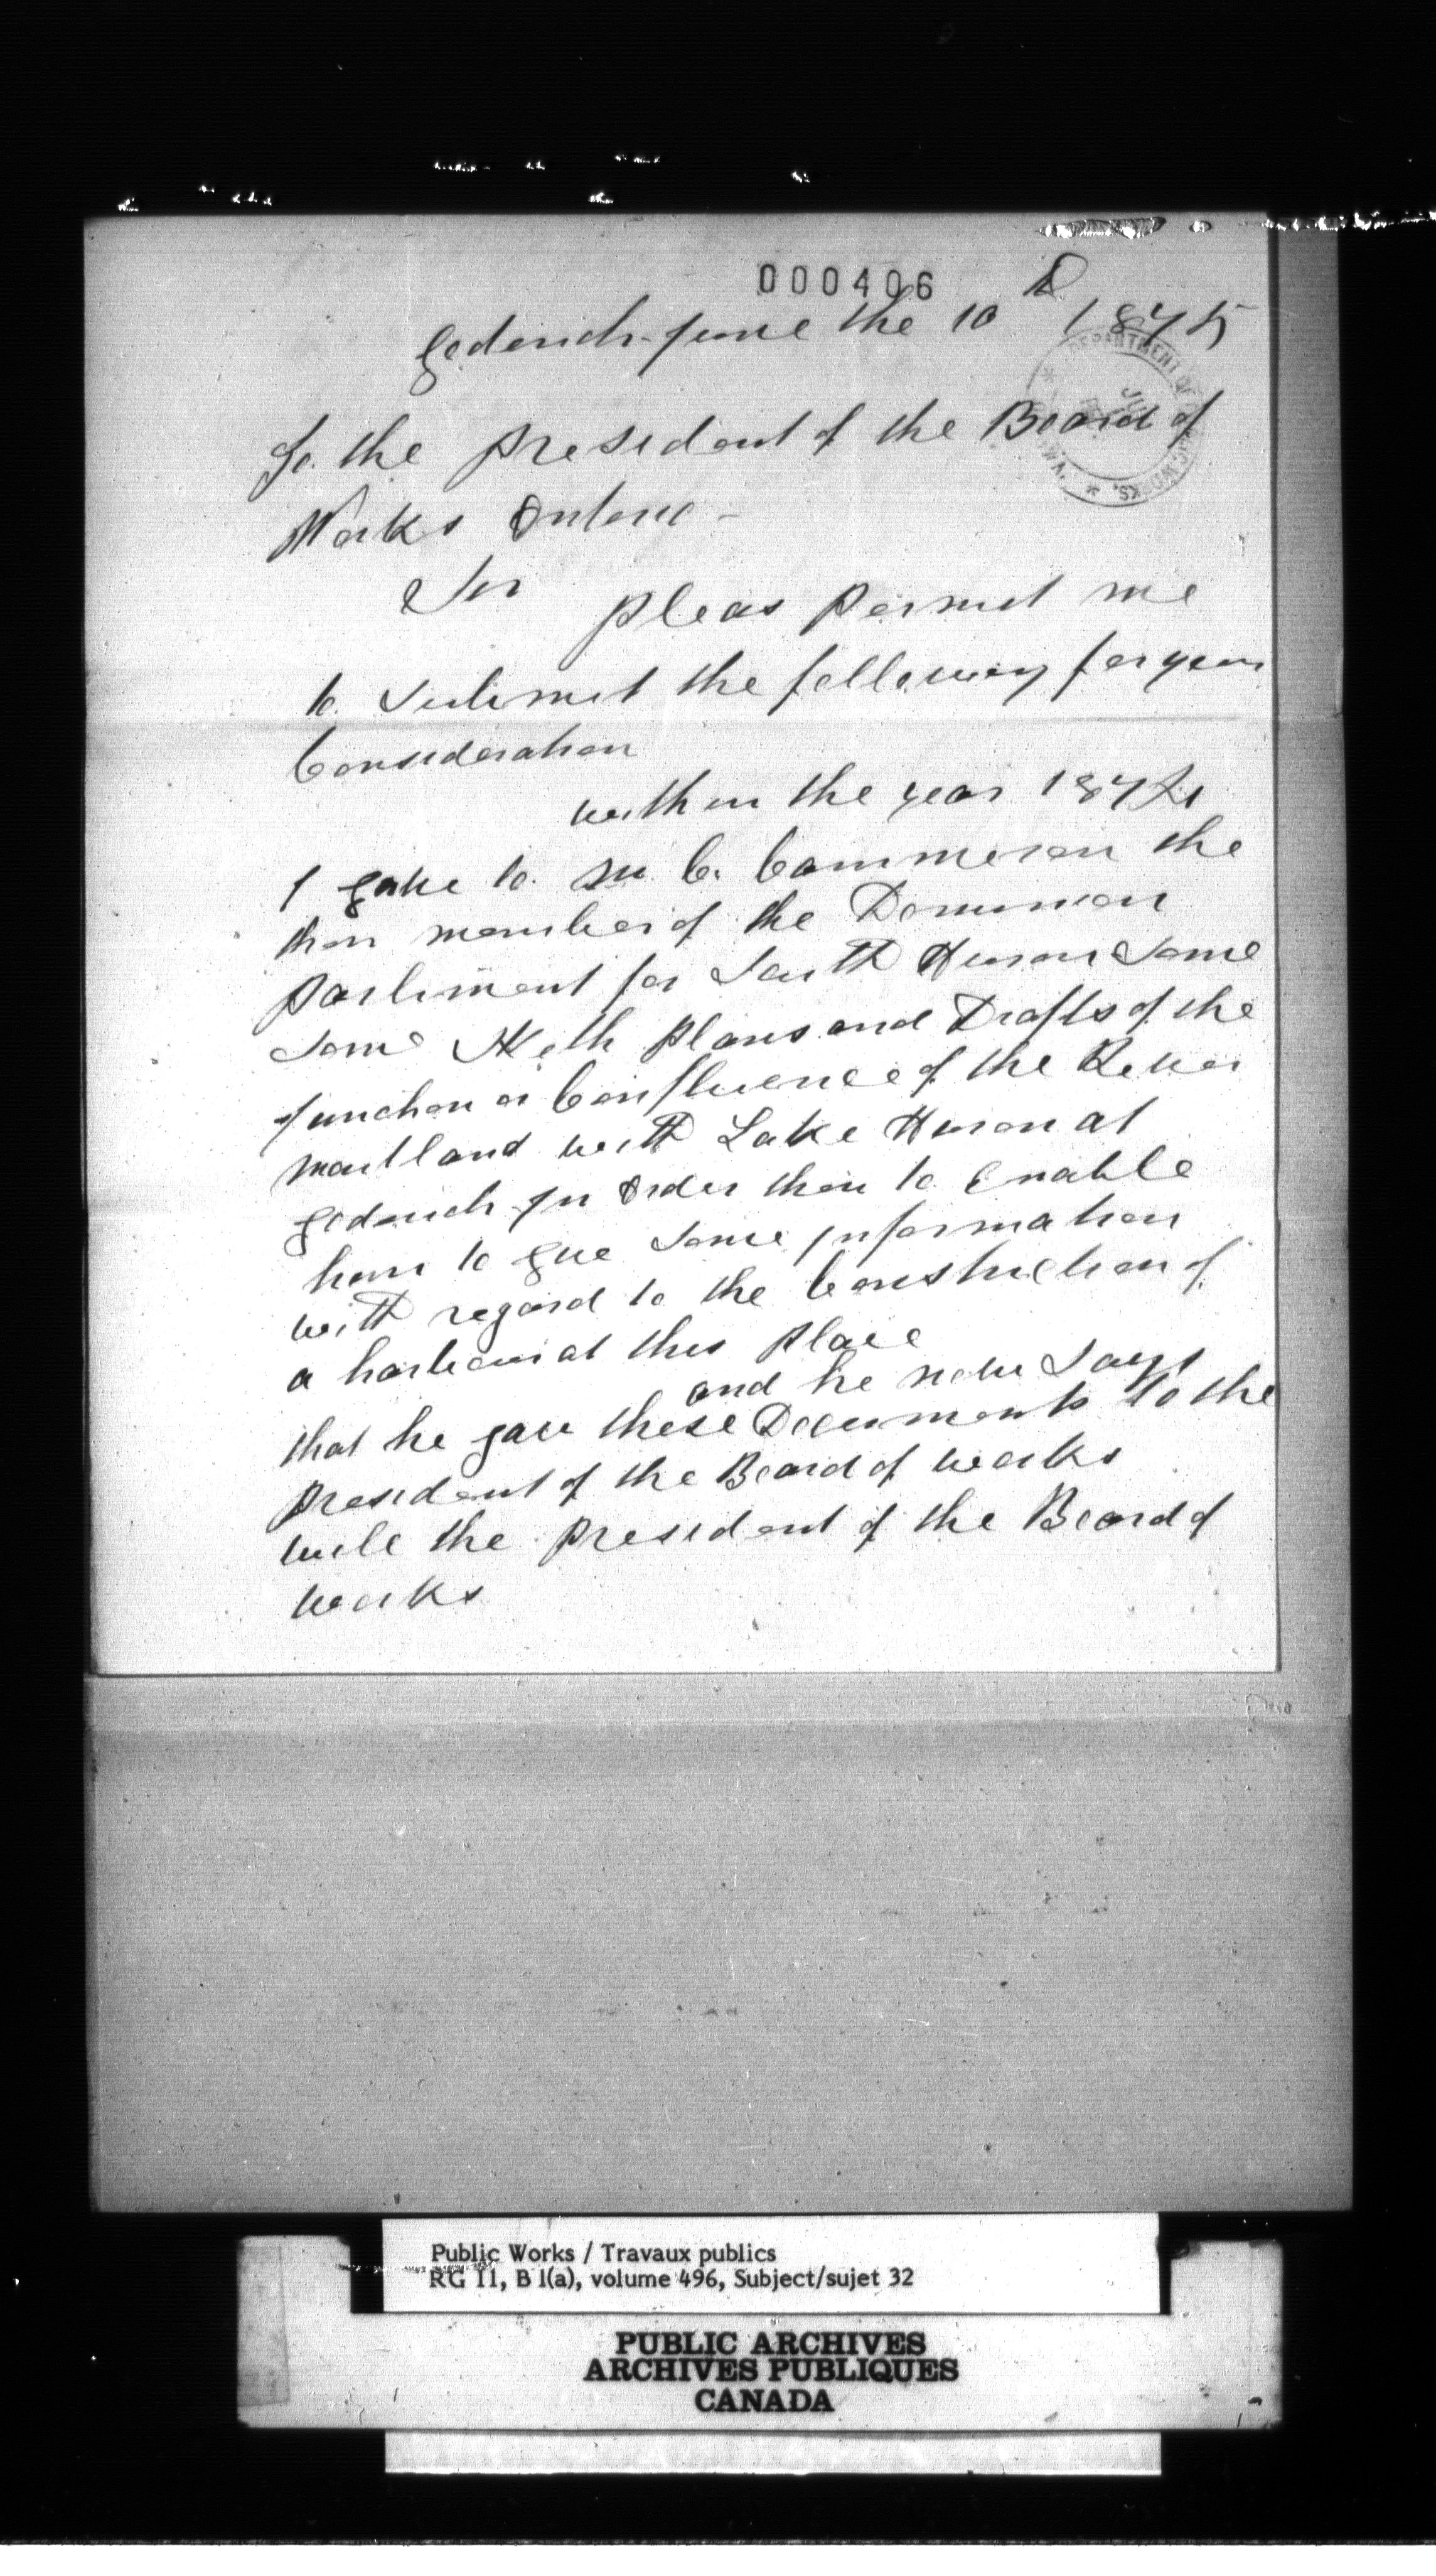 000406
Goderich June the 10 1875
To the President of the Board of
Works Ontario -
Sir please Permit me
to Submit the following for your
Consideration
within the year 1872
I gave to M C Cammeron the
then member of the Dominion
Parliment for South Huron Some
Some plans and Drafts of the
Junction or Confluence of the River
maitland with Lake Huron at
Goderich In Order then to Enable
him to give Some Information
with regard to the Construction of
a harbour at this Place
and he now Says
that he gave these Documents to the
President of the Board of works
will the President of the Board of
works
DEPARTMENT OF PUBLIC WORKS
Public Works / Travaux publics
RG 11, B 1(a), volume 496, Subject/sujet 32
PUBLIC ARCHIVES
ARCHIVES PUBLIQUES
CANADA